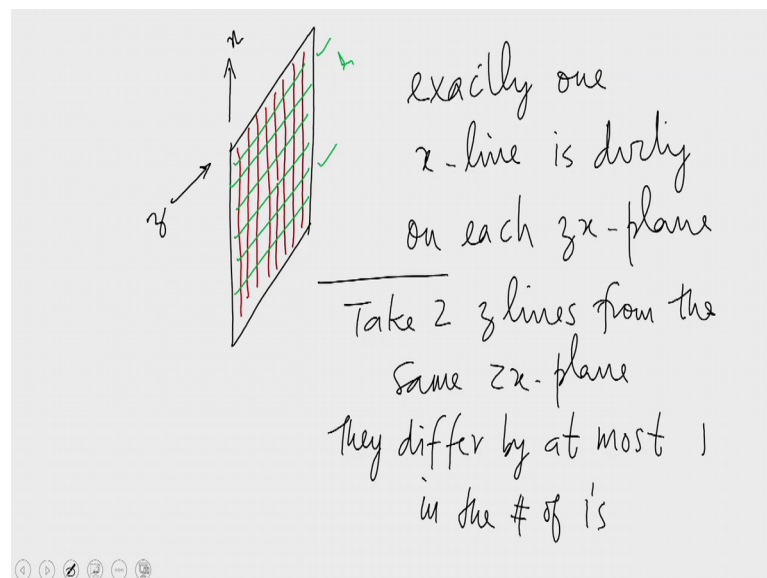 x
z
exactly one
x-line is dirty
on each zx-plane
Take 2 z lines from the
same zx-plane
They differ by at most 1
in the # of 1's